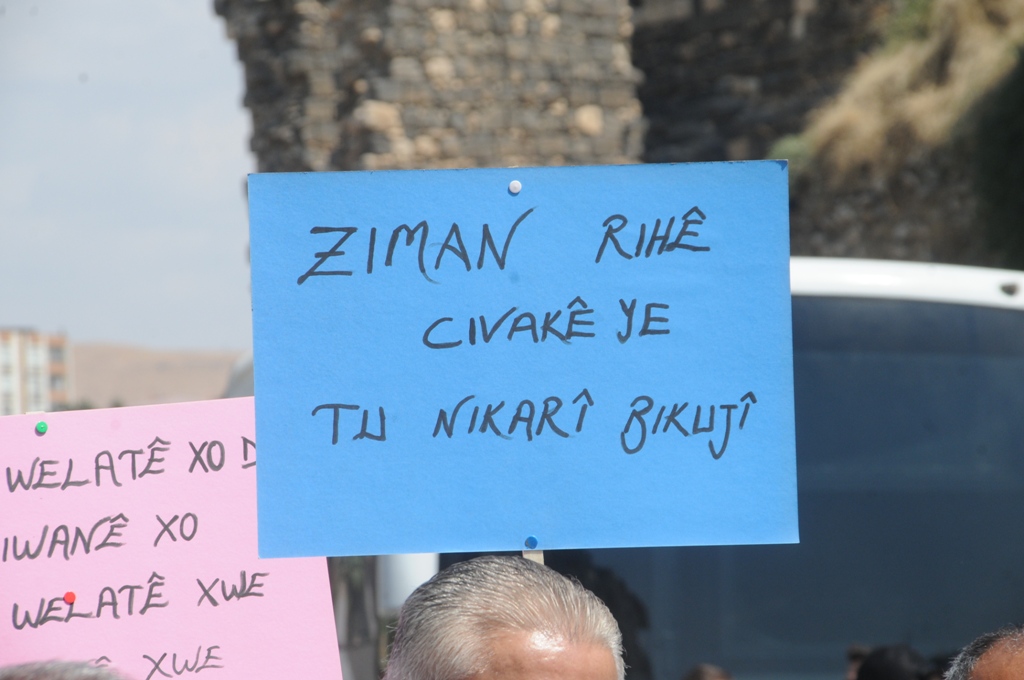 ZIMAN RIHÊ
CIVAKÊ YE
TU NIKARÎ BIKUJÎ
WELATÊ XO
IWANÊ XO
WELATÊ XWE
XWE